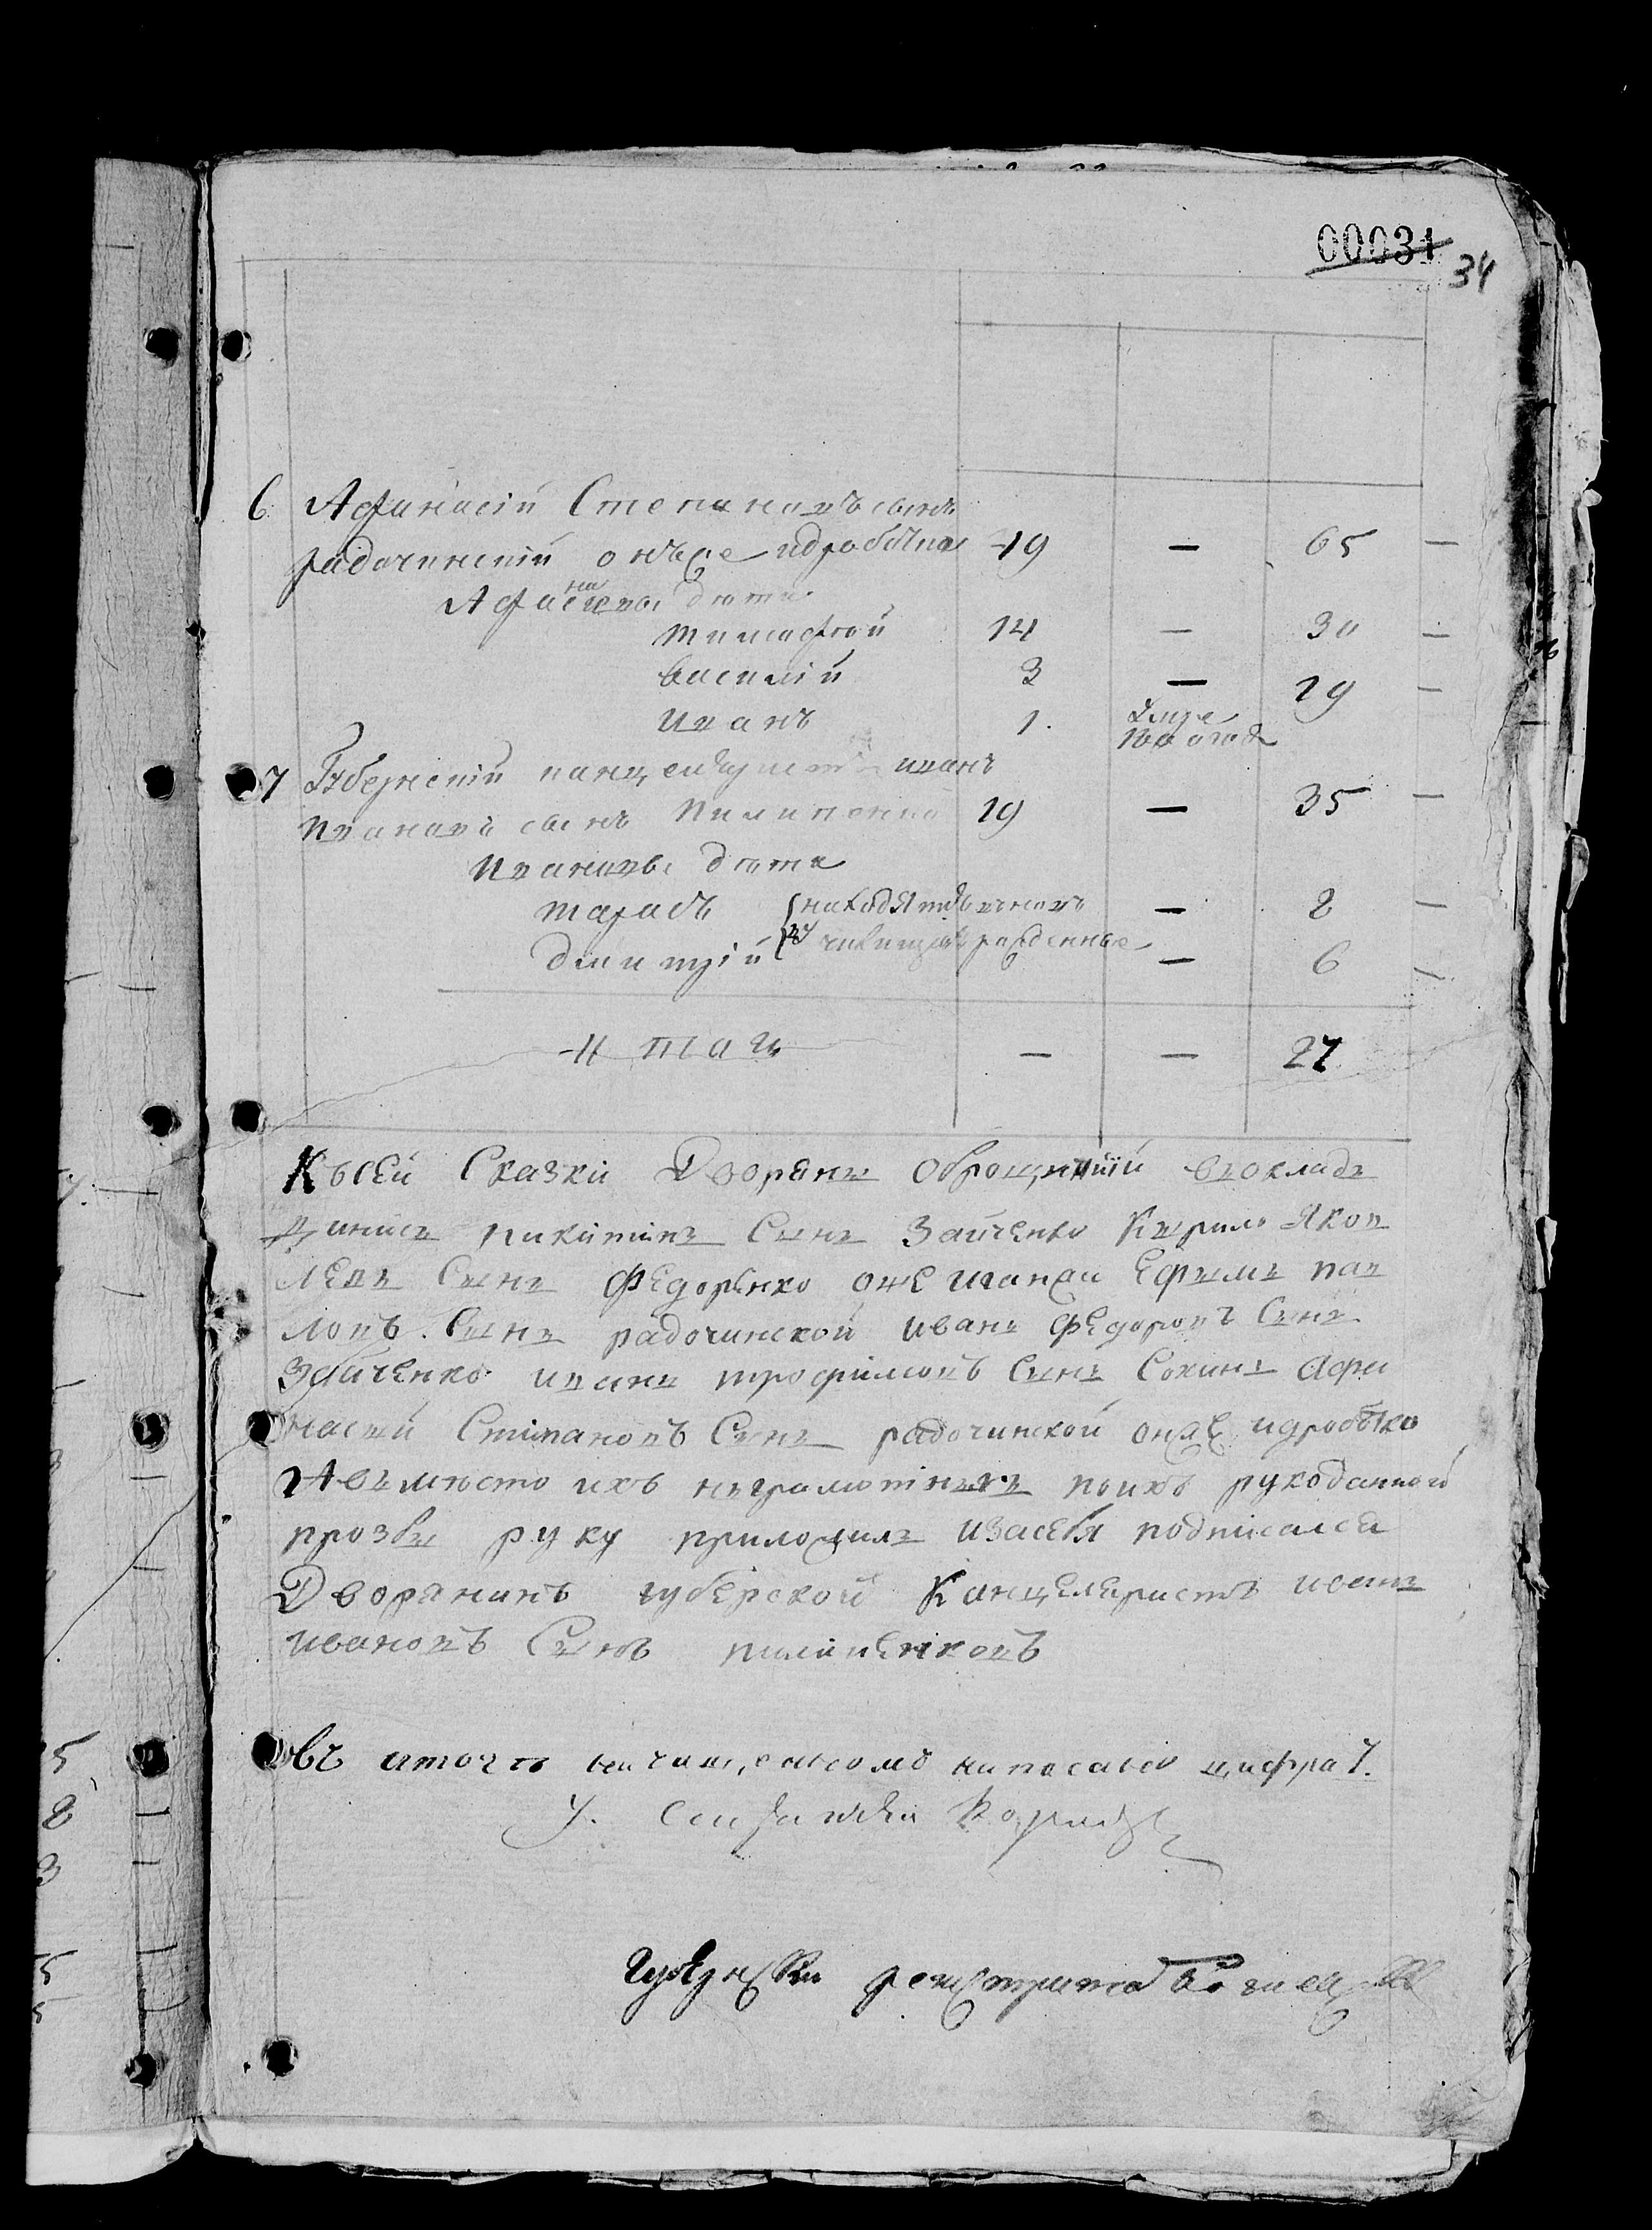 00031
34
6 Афанасій Степановъ сынъ
радочинскій онъже идробѣтка 49 — 65 —
Афанасіевы дѣти
тимофѣй 14 — 30 —
василій 3 — 19 —
иванъ 1.
7 Губернскій канцеляристъ иванъ
ивановъ сынъ пилипенко 19 — 35 —
ивановы дѣти
тарасъ — 8 —
дмитрій рожденные — 6 —
Итого — — 27
Къ сей Сказки Дворяне оброщенніи въокладъ
никитинъ Сынъ Зайченко Кирило Яков
левъ Сынъ Федоренко онже Ефимъ пав
ловъ Сынъ радочинской иванъ Федоровъ Сынъ
Зайченко иванъ трофимовъ Сынъ Сохинъ Афа
насий Стипановъ Сынъ радочинской онже идробѣтко
Авъмѣсто ихъ неграмотныхъ поихъ рукоданной
прозбы руку приложилъ изасебя подписался
Дворянинъ губерской Канцеляристъ иванъ
ивановъ Сынъ пилипенковъ
Въ итогѣ по чищенному написано цифра 7.